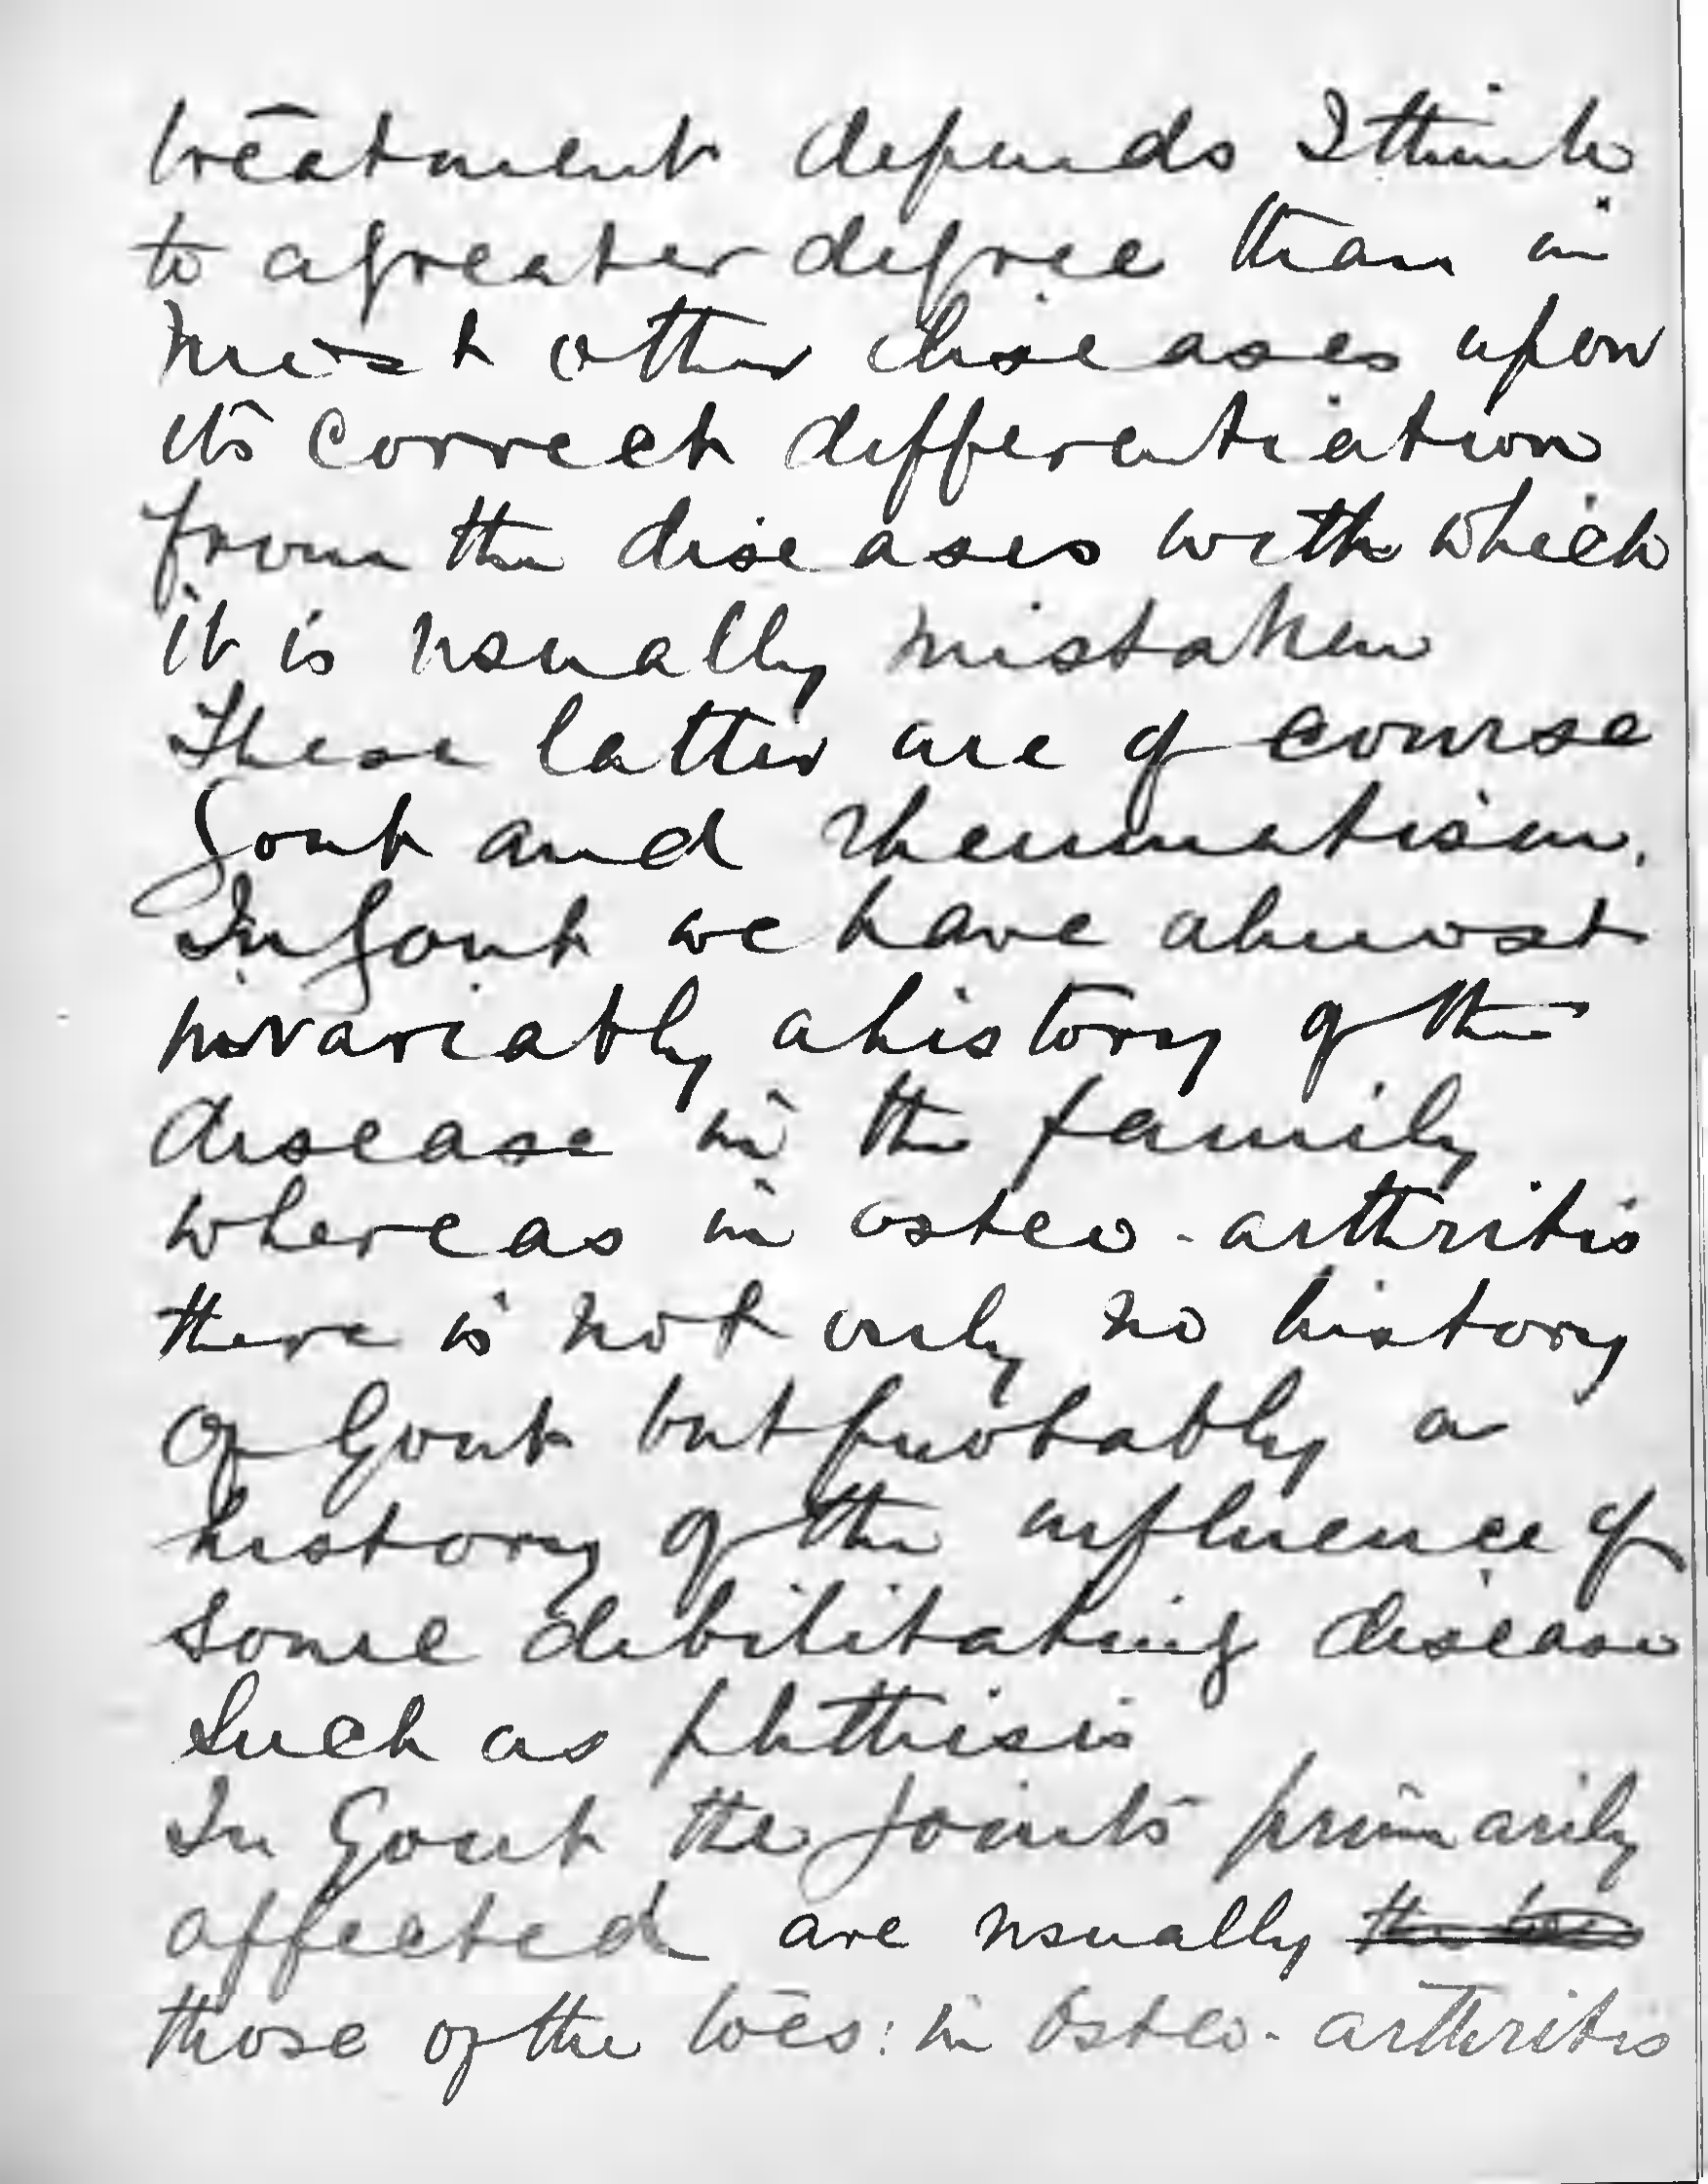 treatment depends I think
to a greater degree than in
most other diseases upon
its correct differentiation
from the diseases with which
it is usually mistaken
These latter are of course
Gout and rheumatism.
In Gout we have almost
invariably a history of the
disease in the family
whereas in osteo-arthritis
there is not only no history
of Gout but probably a
history of the influence of
some debilitating disease
such as phthisis
In Gout the joints primarily
affected are usually the toes
those of the toes: in Osteo-arthritis